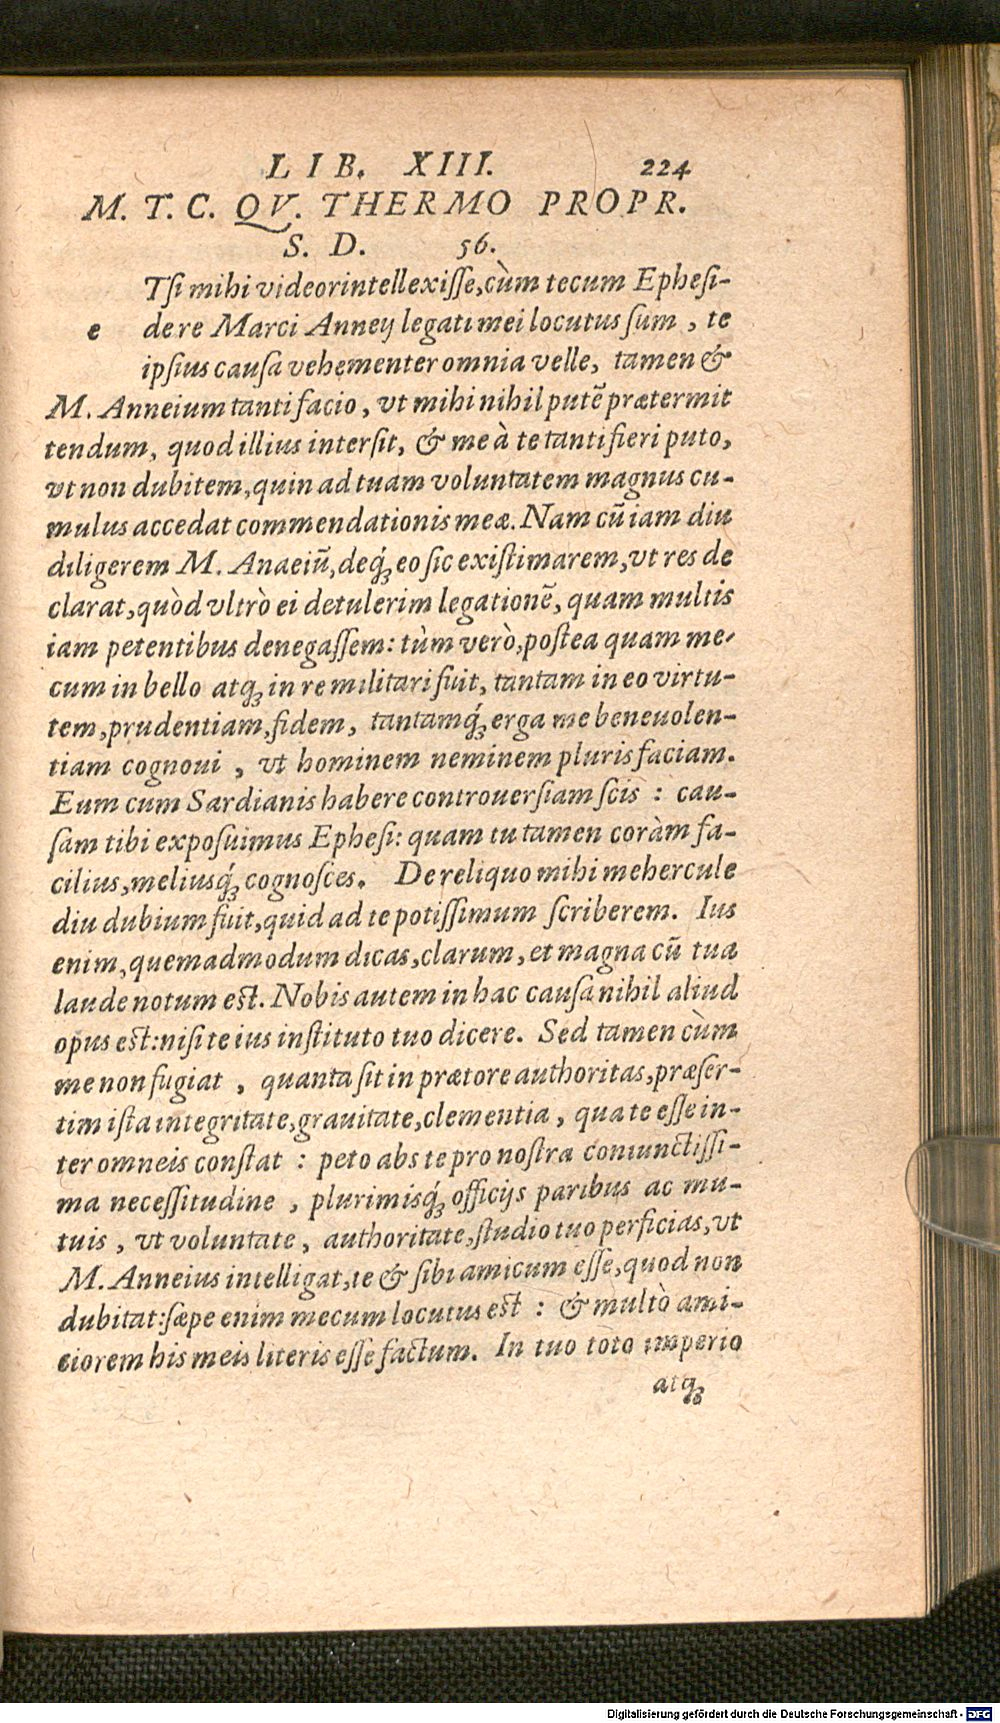 LIB. XIII. 224
M. T. C. QV. THERMO PROPR.
S. D. 56.
Tſi mihi videor intellexiſſe, cùm tecum Epheſi-
e de re Marci Anneij legati mei locutus ſum, te
ipſius cauſa vehementer omnia velle, tamen &
M. Anneium tanti facio, vt mihi nihil putẽ prætermit
tendum, quod illius interſit, & me à te tanti fieri puto,
vt non dubitem, quin ad tuam voluntatem magnus cu-
mulus accedat commendationis meæ. Nam cũ iam diu
diligerem M. Anaeiũ, deq́ꝫ eo ſic exiſtimarem, vt res de
clarat, quòd vltrò ei detulerim legationẽ, quam multis
iam petentibus denegaſſem: tùm verò, poſtea quam me-
cum in bello atqꝫ in re militari fuit, tantam in eo virtu-
tem, prudentiam, fidem, tantamq́ꝫ erga me beneuolen-
tiam cognoui, vt hominem neminem pluris faciam.
Eum cum Sardianis habere controuerſiam ſcis: cau-
ſam tibi expoſuimus Epheſi: quam tu tamen coràm fa-
cilius, meliusq́ꝫ cognoſces. De reliquo mihi mehercule
diu dubium fuit, quid ad te potiſſimum ſcriberem. Ius
enim, quemadmodum dicas, clarum, et magna cũ tua
laude notum est. Nobis autem in hac cauſa nihil aliud
opus est: niſi te ius inſtituto tuo dicere. Sed tamen cùm
me non fugiat, quanta ſit in prætore authoritas, præſer-
tim iſta integritate, grauitate, clementia, qua te eſſe in-
ter omneis conſtat: peto abs te pro noſtra coniunctiſſi-
ma neceſſitudine, plurimisq́ꝫ officijs paribus ac mu-
tuis, vt voluntate, authoritate, ſtudio tuo perficias, vt
M. Anneius intelligat, te & ſibi amicum eſſe, quod non
dubitat: ſæpe enim mecum locutus est: & multò ami-
ciorem his meis literis eſſe factum. In tuo toto imperio
atqꝫ
Digitalisierung gefördert durch die Deutsche Forschungsgemeinschaft - DFG